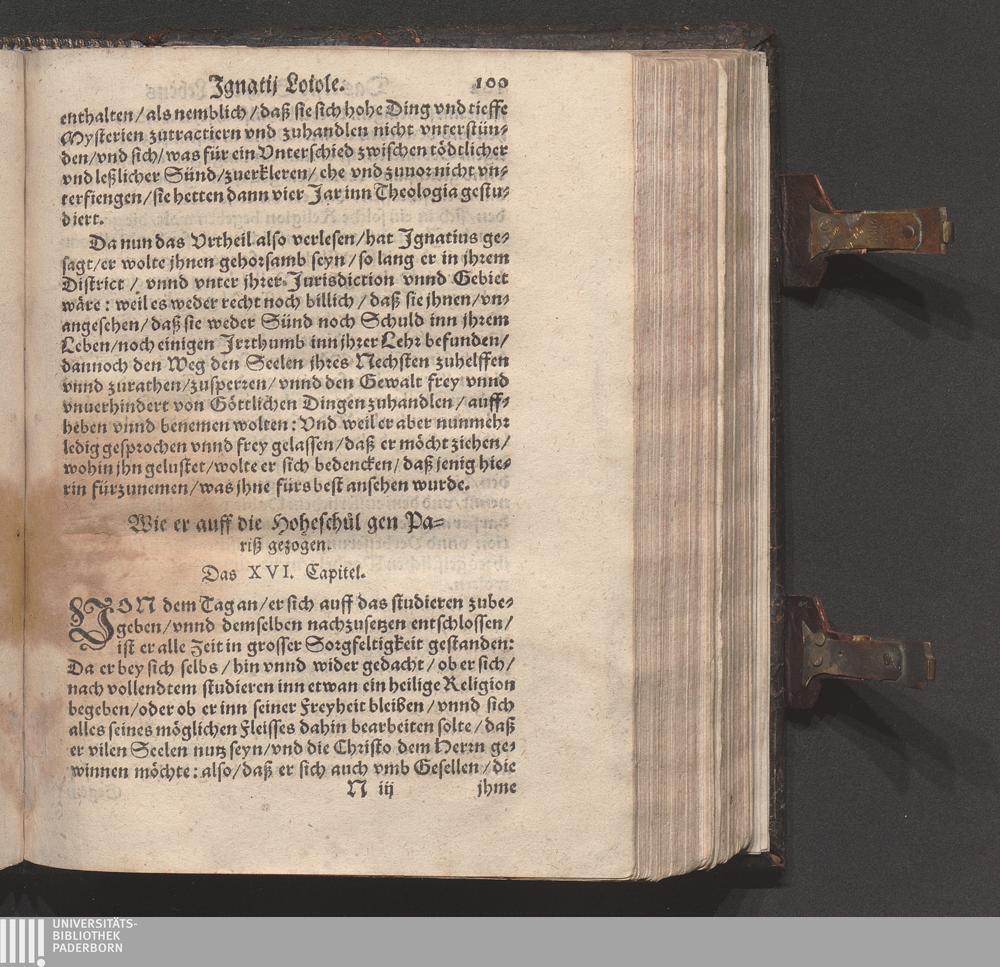 Ignatij Loiole. 100
enthalten/als nemblich/daß sie sich hohe Ding vnd tieffe
Mysterien zutractiern vnd zuhandlen nicht vnterstün-
den/vnd sich/was für ein Vnterschied zwischen tödtlicher
vnd leßlicher Sünd/zuerkleren/ ehe vnd zuuor nicht vn-
terfiengen/sie hetten dann vier Jar inn Theologia gestu-
diert.
Da nun das Vrtheil also verlesen/hat Ignatius ge-
sagt/er wolte jhnen gehorsamb seyn/so lang er in jhrem
District / vnnd vnter jhrer Jurisdiction vnnd Gebiet
wäre: weil es weder recht noch billich / daß sie jhnen/vn-
angesehen/daß sie weder Sünd noch Schuld inn jhrem
Leben/noch einigen Irrthumb inn jhrer Lehr befunden/
dannoch den Weg den Seelen jhres Nechsten zuhelffen
vnnd zurathen/zusperren/vnnd den Gewalt frey vnnd
vnuerhindert von Göttlichen Dingen zuhandlen/auff-
heben vnnd benemen wolten: Vnd weil er aber nunmehr
ledig gesprochen vnnd frey gelassen/daß er möcht ziehen/
wohin jhn gelustet/wolte er sich bedencken/daß jenig hie-
rin fürzunemen/was jhne fürs best ansehen wurde.
Wie er auff die Hoheschül gen Pa-
riß gezogen.
Das XVI. Capitel.
VON dem Tag an/er sich auff das studieren zube-
geben/vnnd demselben nachzusetzen entschlossen/
ist er alle Zeit in grosser Sorgfeltigkeit gestanden:
Da er bey sich selbs/hin vnnd wider gedacht/ob er sich/
nach vollendtem studieren inn etwan ein heilige Religion
begeben/oder ob er inn seiner Freyheit bleiben/vnnd sich
alles seines möglichen Fleisses dahin bearbeiten solte/daß
er vilen Seelen nutz seyn/vnd die Christo dem Herrn ge-
winnen möchte: also/daß er sich auch vmb Gesellen/die
N iij jhme
UNIVERSITÄTS-
BIBLIOTHEK
PADERBORN